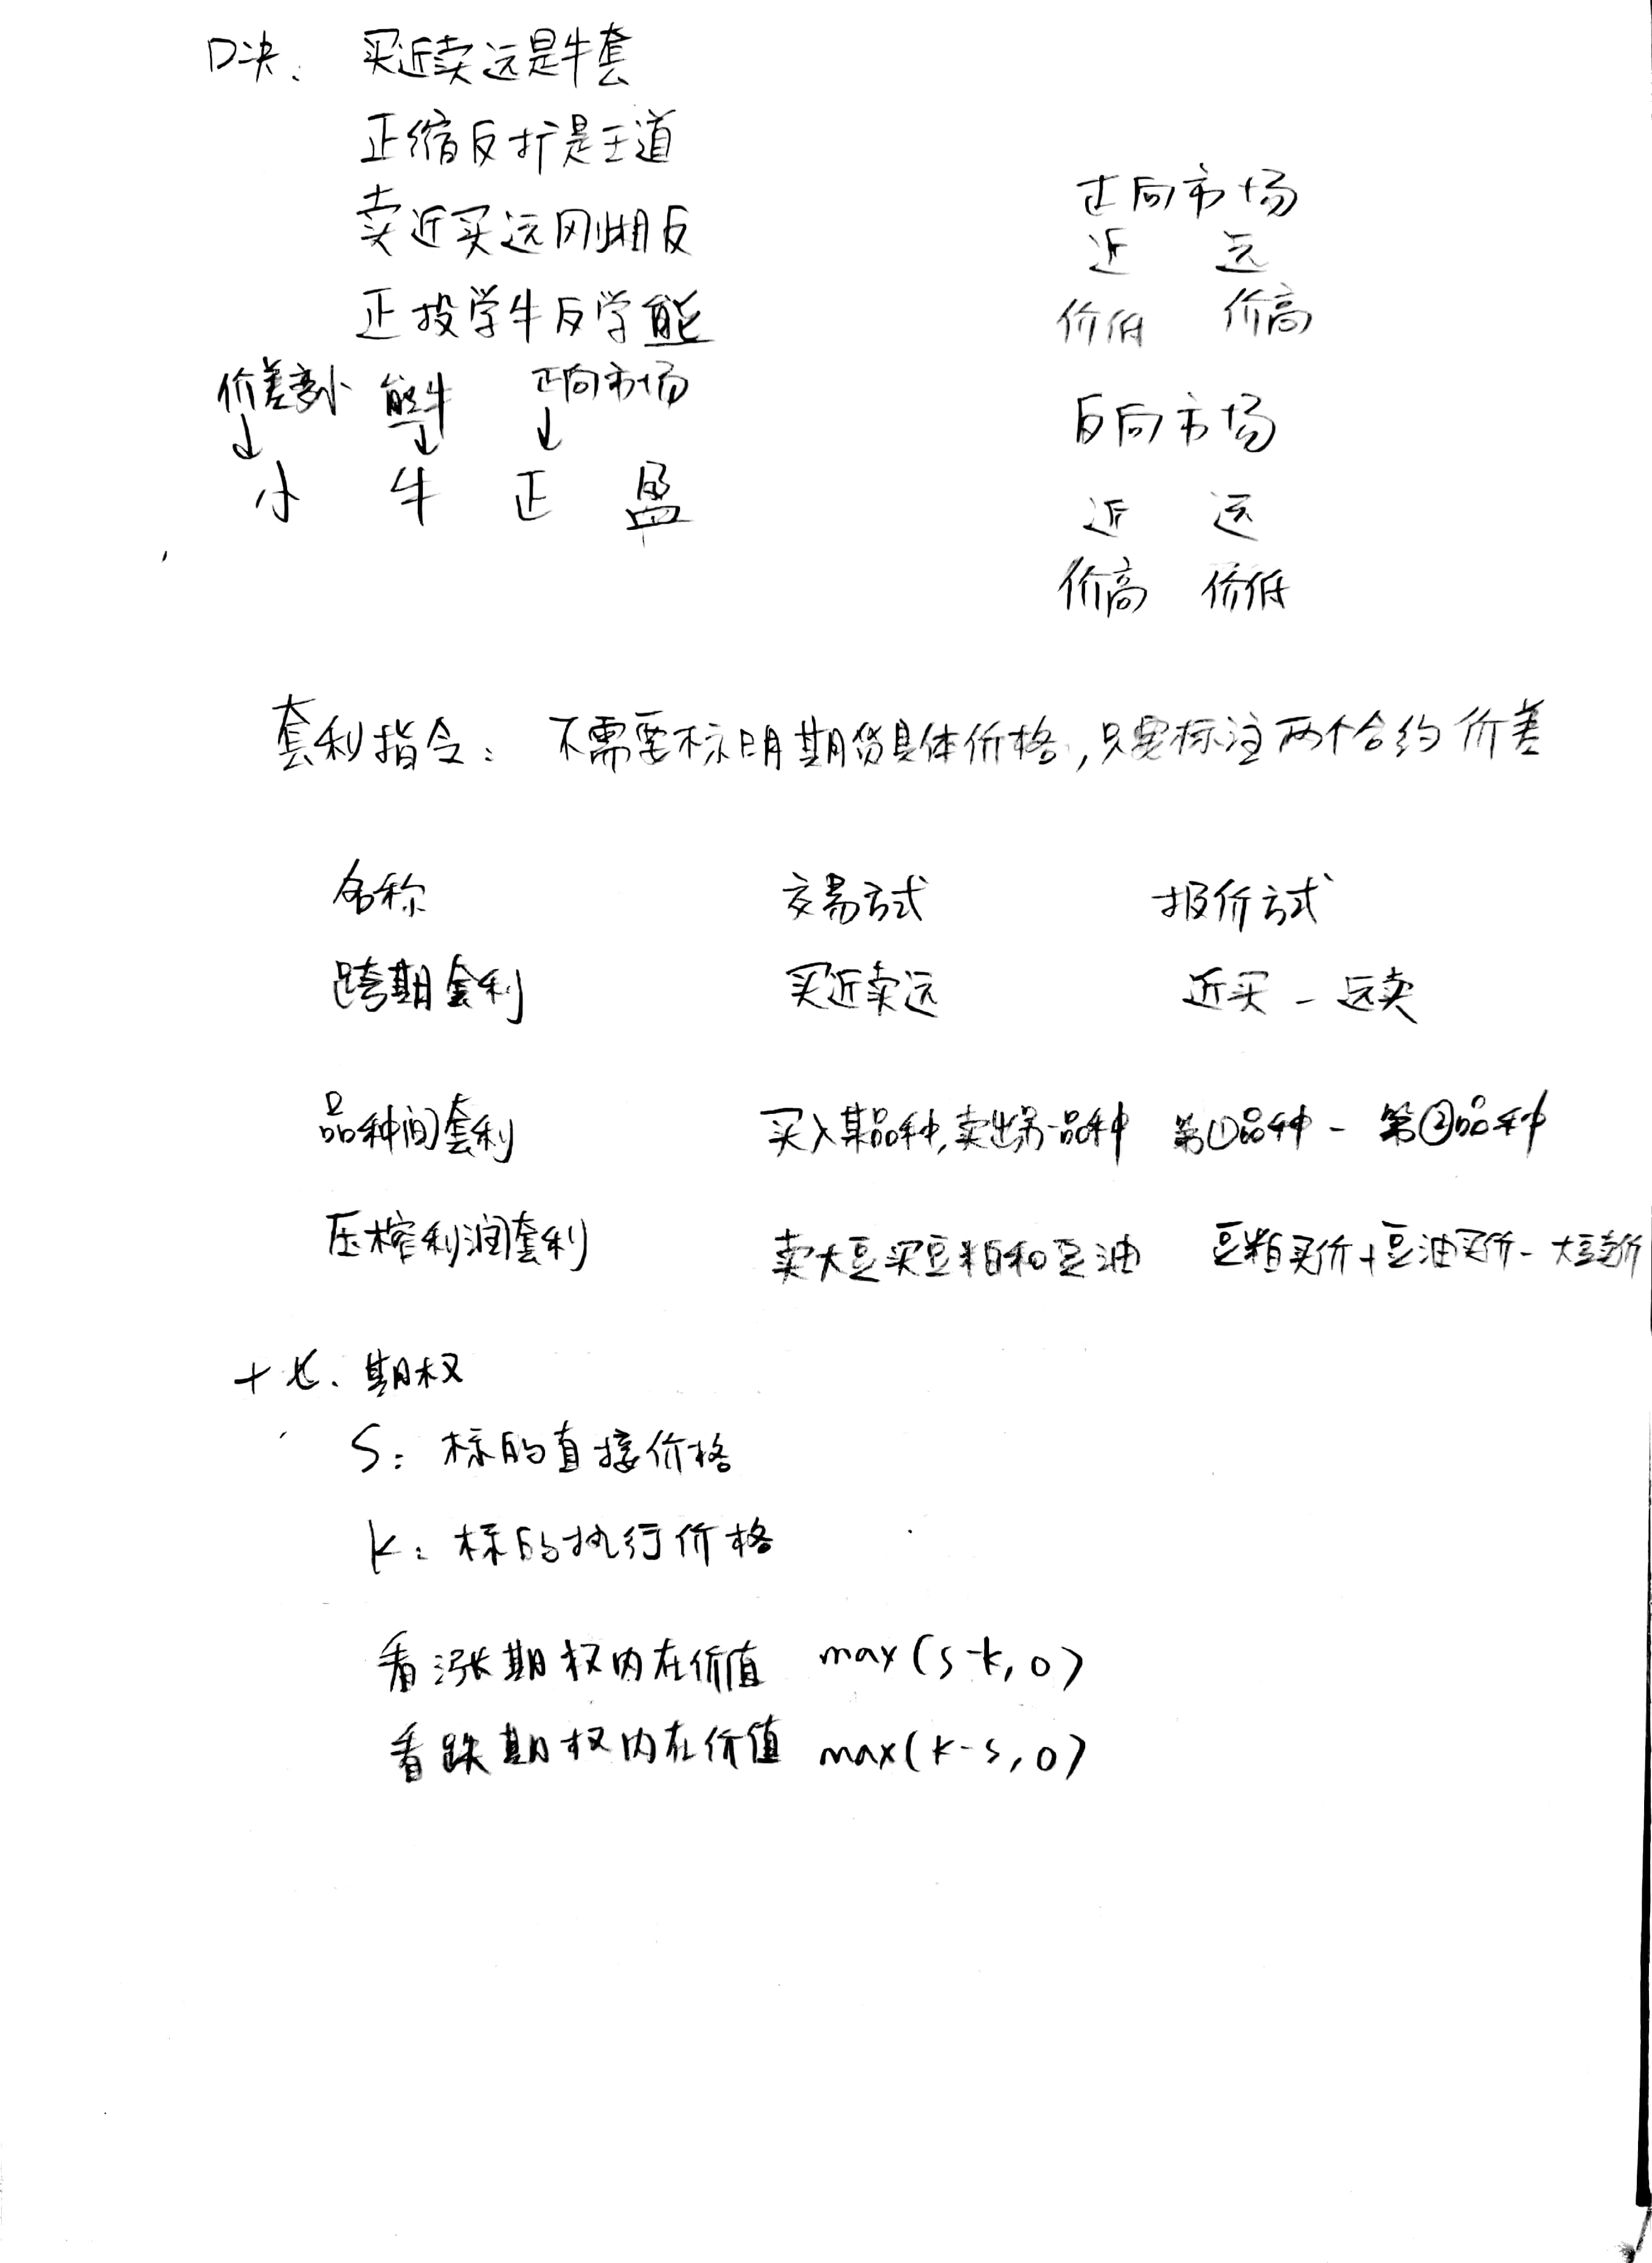 口决：买近卖远是牛套
正缩反扩是王道
卖近买远刚相反
正投学牛反学能
价差变小 熊牛 正向市场
↓ ↓ ↓
小 牛 正 盈
正向市场
近 远
价低 价高
反向市场
近 远
价高 价低
套利指令：不需要标明期货具体价格，只要标注两个合约价差
名称 交易方式 报价方式
跨期套利 买近卖远 近买 - 远卖
品种间套利 买入某品种,卖出另一品种 第①品种 - 第②品种
压榨利润套利 卖大豆买豆粕和豆油 豆粕买价+豆油买价-大豆卖价
十七、期权
S：标的直接价格
k：标的执行价格
看涨期权内在价值 max(s-k,0)
看跌期权内在价值 max(k-s,0)